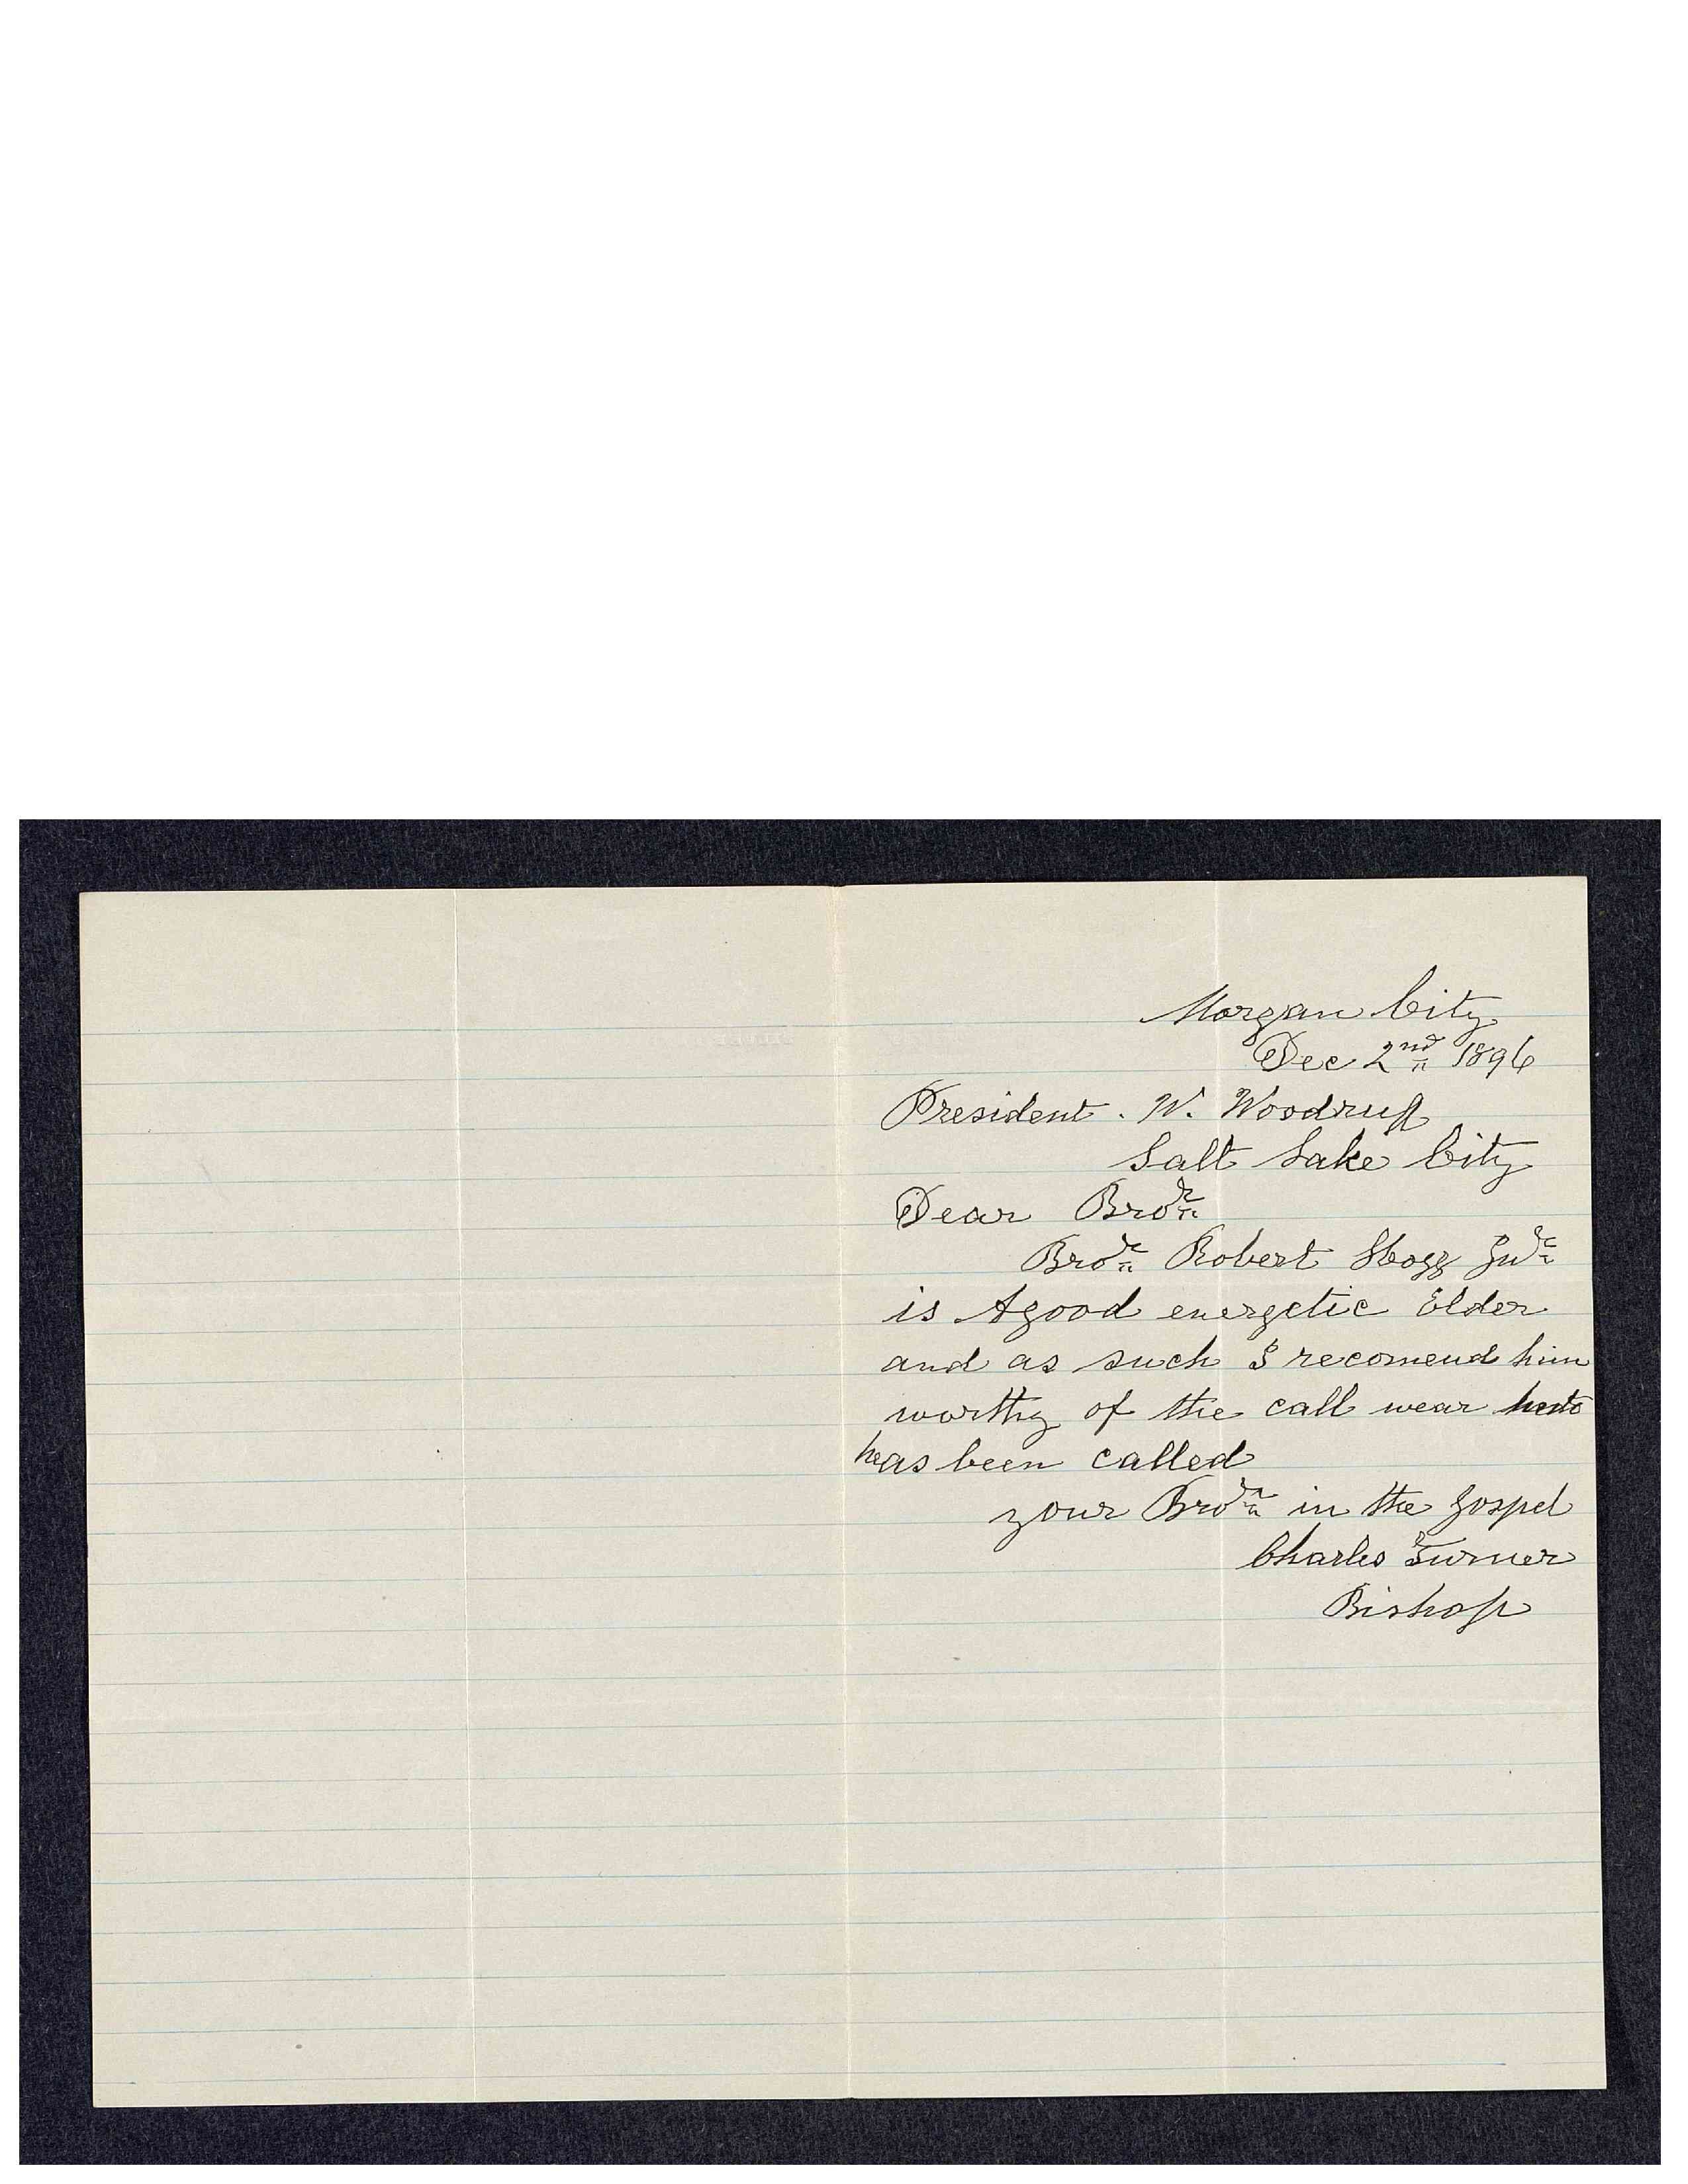 Morgan City
Dec 2nd 1896
President. W. Woodruff
Salt Lake City
Dear Bror
Bror Robert Hogg Jur
is A good energetic Elder
and as such I recomend him
worthy of the call wear
has been called
your Bror in the Gospel
Charles Turner
Bishop